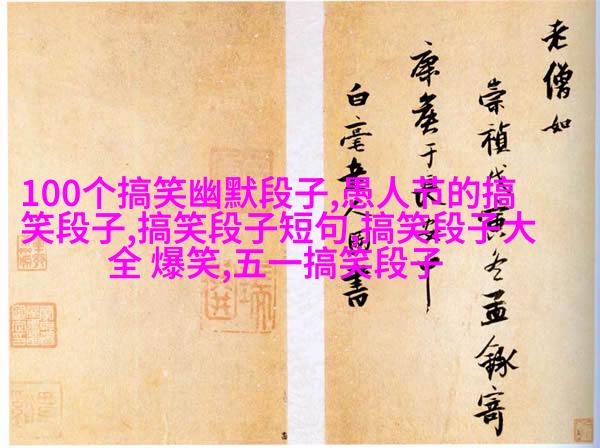 100个搞笑幽默段子,愚人节的搞
笑段子,搞笑段子短句,搞笑段子大
全 爆笑,五一搞笑段子
老僧如
崇禎戊寅冬孟錄寄
康侯于長安中
白毫圖書